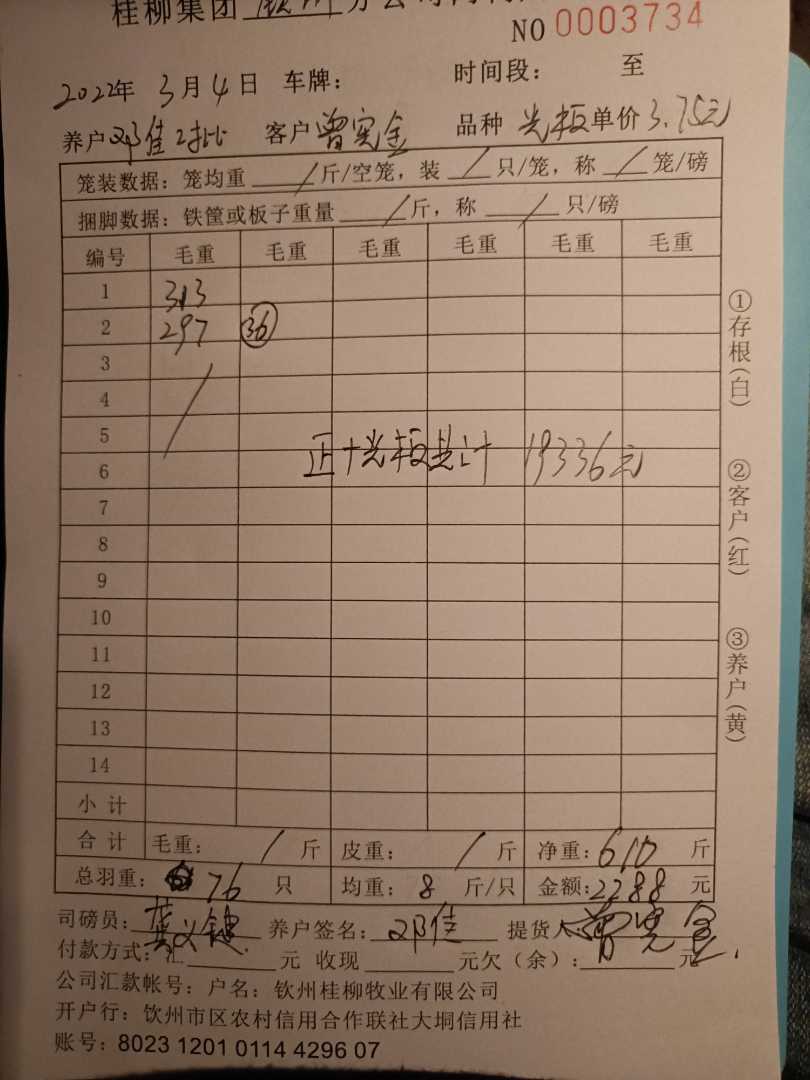 桂柳集团 钦州 分公司
NO 0003734
2022年 3月 4日 车牌： 时间段： 至
养户 邓佳2批 客户 曾宪金 品种 光板 单价 3.75元
笼装数据：笼均重 / 斤/空笼，装 / 只/笼，称 / 笼/磅
捆脚数据：铁筐或板子重量 / 斤，称 / 只/磅
编号 毛重 毛重 毛重 毛重 毛重 毛重
1 313
2 297 36
3
4
5
6 正十光板共计 19336元
7
8
9
10
11
12
13
14
小计
合计 毛重： / 斤 皮重： / 斤 净重：610 斤
总羽重： 76 只 均重： 8 斤/只 金额：2288 元
司磅员： 养户签名： 邓佳 提货人 曾宪金
付款方式：汇 元 收现 元欠（余）： 元
公司汇款帐号：户名：钦州桂柳牧业有限公司
开户行：钦州市区农村信用合作联社大垌信用社
账号：8023 1201 0114 4296 07
①存根（白）
②客户（红）
③养户（黄）